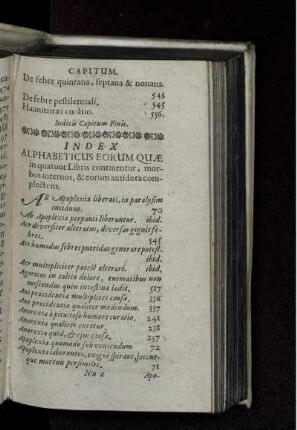 CAPITUM.
De febre quintana, septana & nonana.
543
De febre pestilentiali. 545
Hæmitritæi curatio. 556.
Indicis Capitum Finis.
INDEX
ALPHABETICUS EORUM QUÆ
in quatuor Libris continentur, mor-
bos internos, & eorum antidota com-
plectens.
AB Apoplexia liberati, in paralysim
incidunt. 70
Ab Apoplexia perpauci liberantur. ibid.
Aer diversiter alteratus, diversas gignit fe-
bres. 545
Aer humidus febres putridas generare potest.
ibid.
Aer multipliciter potest alterari. ibid.
Agaricus in colico dolore, enematibus non
miscendus quin intestina lædit. 517
Ani procidentia multiplices causæ. 336
Ani procidentia qualiter medendum. 337
Anorexia à pituitoso humore curatio. 241
Anorexia qualiter curetur. 238
Anorexia quid, & ejus causæ. 237
Apoplexia quomodo subveniendum 72
Apoplexia laborantes, exiguè spirant, jacent-
que mortuis persimiles. 71
Nn 2 Apo-